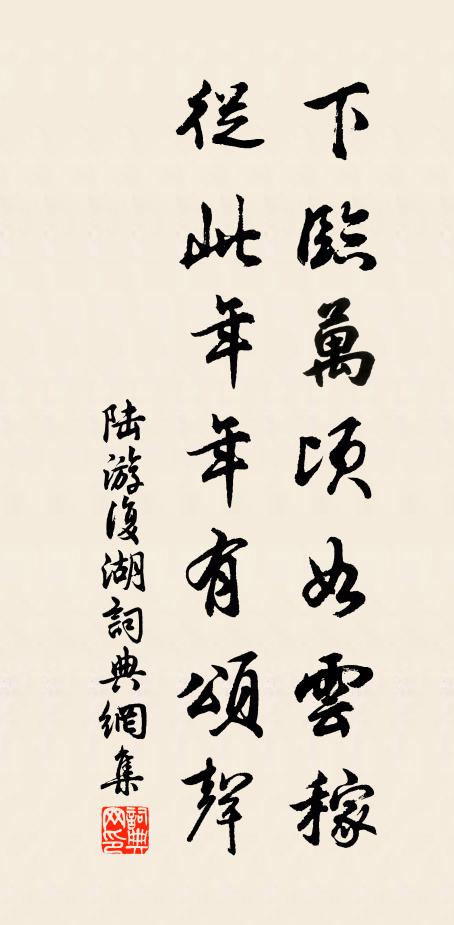 下臨萬頃如雲稼
從此年年有頌聲
陸游復湖詞典網集
詞典網印